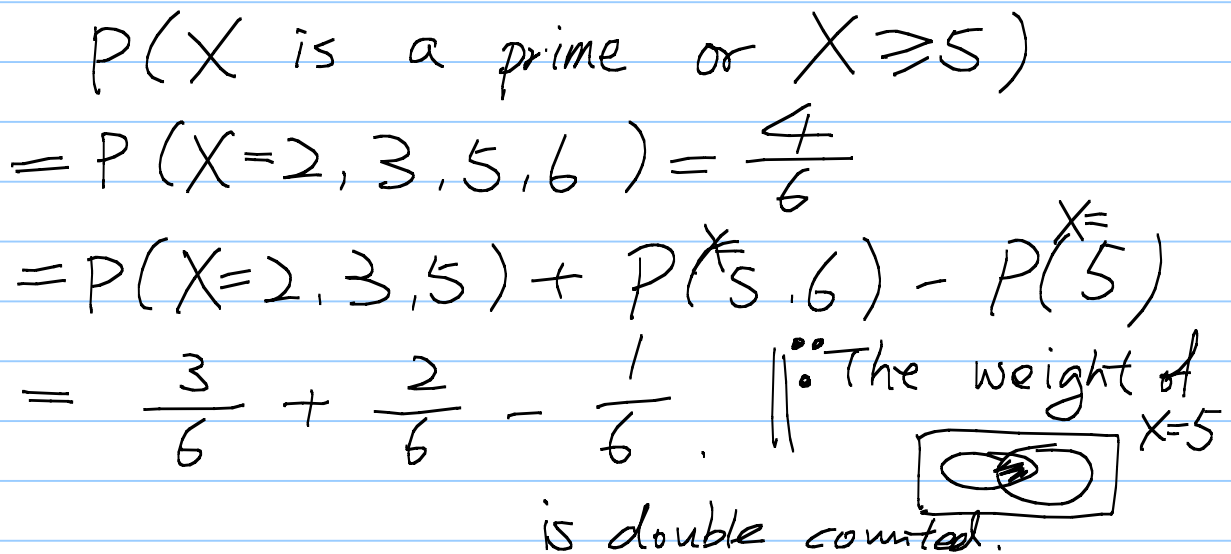 P(X is a prime or X≥5)
=P(X=2,3,5,6)=4/6
=P(X=2,3,5)+P(X=5,6)-P(X=5)
= 3/6 + 2/6 - 1/6. ||∵The weight of
X=5
is double counted.